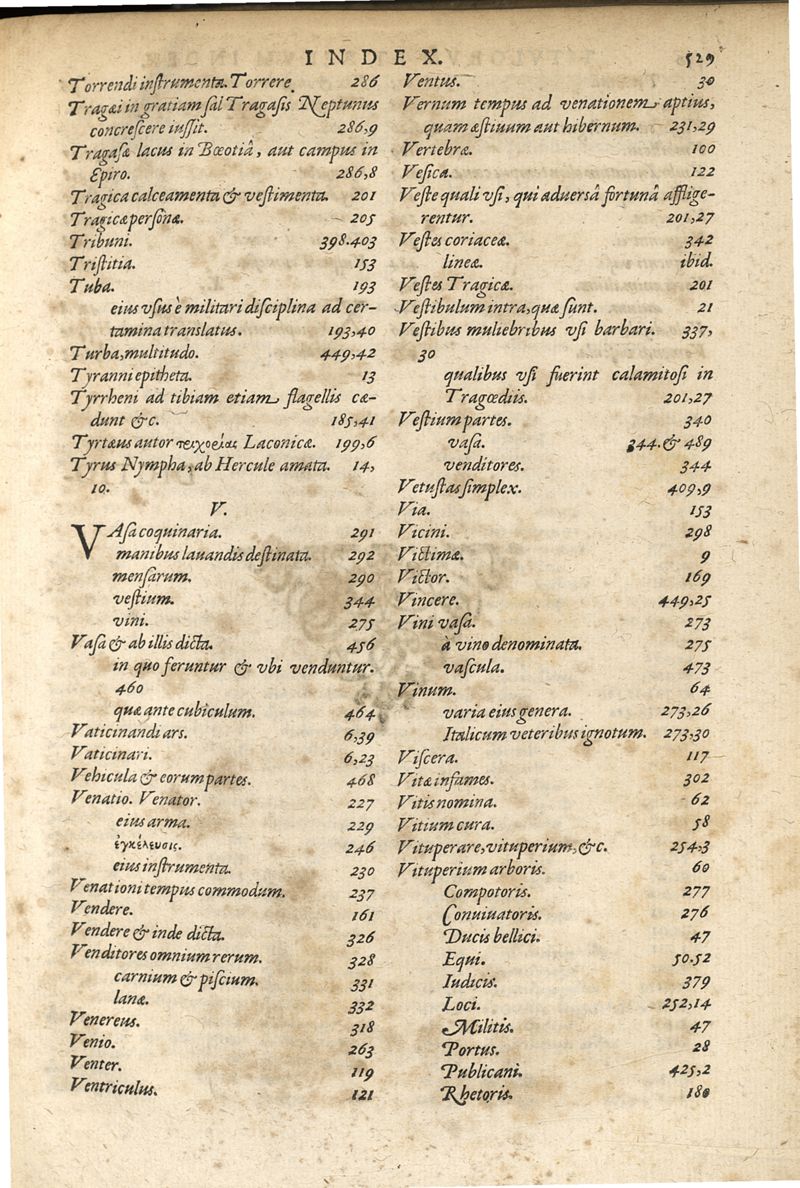 INDEX. 529
Torrendi instrumenta. Torrere 286
Tragæi in gratiam sal Tragasis Neptunus
concrescere iussit. 286,9
Tragasæ lacus in Bœotiâ, aut campus in
Epiro. 286,8
Tragica calceamenta & vestimenta. 201
Tragicæ personæ. 205
Tribuni. 398.403
Tristitia. 153
Tuba. 193
eius vsus è militari disciplina ad cer-
tamina translatus. 193,40
Turba, multitudo. 449,42
Tyranni epitheta. 13
Tyrrheni ad tibiam etiam flagellis cæ-
dunt &c. 185,41
Tyrtæus autor τειχοείας Laconicæ. 199,6
Tyrus Nympha, ab Hercule amata. 14,
10.
V.
VAsa coquinaria. 291
manibus lauandis destinata. 292
mensarum. 290
vestium. 344
vini. 275
Vasa & ab illis dicta. 456
in quo feruntur & vbi venduntur.
460
quæ ante cubiculum. 464
Vaticinandi ars. 6,39
Vaticinari. 6,23
Vehicula & eorum partes. 468
Venatio. Venator. 227
eius arma. 229
ἐγκέλευσις. 246
eius instrumenta. 230
Venationi tempus commodum. 237
Vendere. 161
Vendere & inde dicta. 326
Venditores omnium rerum. 328
carnium & piscium. 331
lanæ. 332
Venereus. 318
Venio. 263
Venter. 119
Ventriculus. 121
Ventus. 30
Vernum tempus ad venationem aptius,
quam æstiuum aut hibernum. 231,29
Vertebræ. 100
Vesica. 122
Veste quali vsi, qui aduersâ fortunâ afflige-
rentur. 201,27
Vestes coriaceæ. 342
lineæ. ibid.
Vestes Tragicæ. 201
Vestibulum intra, quæ sunt. 21
Vestibus muliebribus vsi barbari. 337,
30
qualibus vsi fuerint calamitosi in
Tragœdiis. 201,27
Vestium partes. 340
vasa. 344. & 489
venditores. 344
Vetustas simplex. 409,9
Via. 153
Vicini. 298
Victimæ. 9
Victor. 169
Vincere. 449,25
Vini vasa. 273
à vino denominata. 275
vascula. 473
Vinum. 64
varia eius genera. 273,26
Italicum veteribus ignotum. 273,30
Viscera. 117
Vitæ infames. 302
Vitis nomina. 62
Vitium cura. 58
Vituperare, vituperium, &c. 254,3
Vituperium arboris. 60
Compotoris. 277
Conuiuatoris. 276
Ducis bellici. 47
Equi. 50.52
Iudicis. 379
Loci. 252,14
Militis. 47
Portus. 28
Publicani. 425,2
Rhetoris. 180